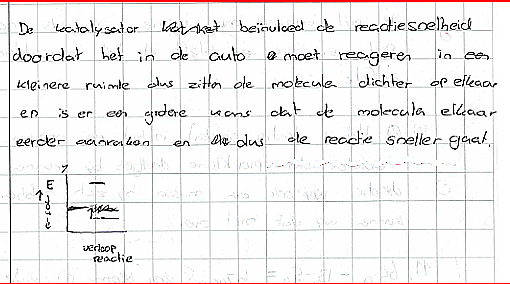 De katalysator beïnvloed de reactiesnelheid
doordat het in de auto moet reageren in een
kleinere ruimte dus zitten de molecula dichter op elkaar
en is er een grotere kans dat de molecula elkaar
eerder aanraken en dus de reactie sneller gaat.
E
Joule
verloop
reactie